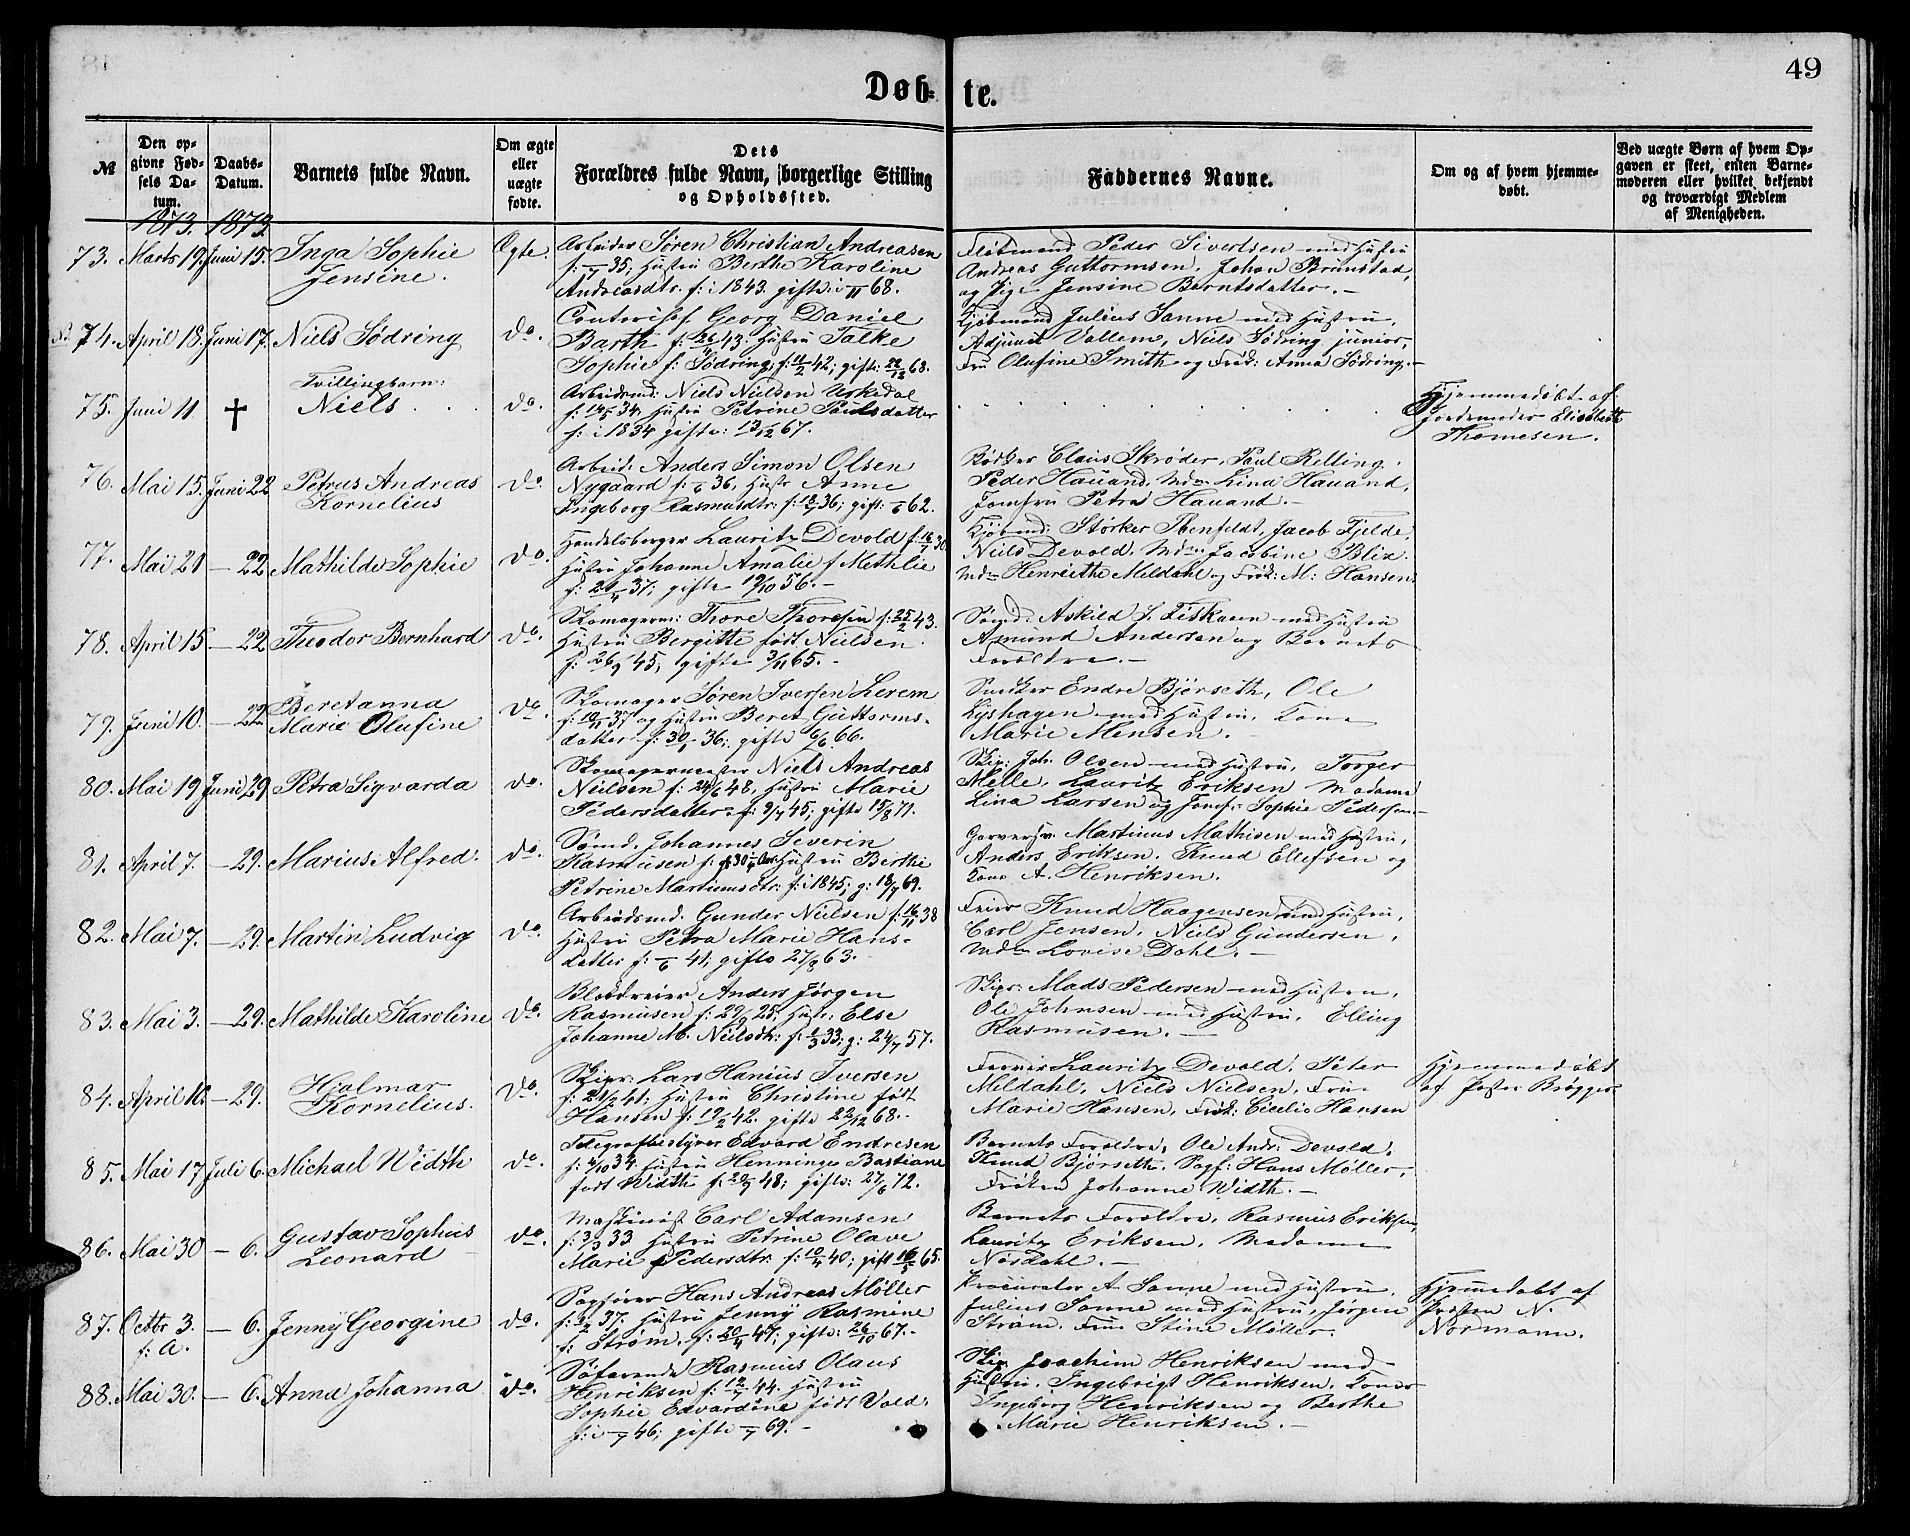 49
Døb- te.
№
Den op-
givne Fød-
sels Da-
tum.
Daabs-
Datum.
Barnets fulde Navn.
Om ægte
eller
uægte
fødte.
Dets
Forældres fulde Navn, borgerlige Stilling
og Opholdssted.
Faddernes Navne.
Om og af hvem hjemme-
døbt.
Ved uægte Børn af hvem Op-
gaven er skeet, enten Barne-
moderen eller hvilket bekjendt
og troværdigt Medlem
af Menigheden.
1873. 1873
73. Marts 19. Juni 15. Inga Sophie
Jensine.
Ægte.
Arbeider Søren Christian Andreasen
f: 35, Hustru Berthe Karoline
Andreasdtr. f: i 1843. gifte: 68.
Peder Sivertsen med Hustru
Andreas Guttormsen, Johan Brunstad,
og Pige Jensine Berntsdatter.
74. April 18. Juni 17. Niels Sødring
do.
Georg Daniel
Barth f: 43. Hustru Talke
Sophie f: Sødring, f: 11/2 42; gift: 22/12 68.
Kjøbmand Julius Sanne med Hustru,
Adjunct Vallem, Niels Sødring junior,
Fru Olufine Smith og Frøk: Anna Sødring.
75. Juni 11 † Tvillingbarn:
Niels
do.
Arbeidsmd: Niels Nielsen Urkedal
34. Hustru Petrine Paulsdatter
f: i 1834 gifte: 13/12 67.
Hjemmedøbt af
Jordemoder Elisabeth
Thomesen.
76. Mai 15. Juni 22 Petrus Andreas
Kornelius
do.
Arbeid. Anders Simon Olsen
Nygaard f: 36, Hustr Anne
Ingeborg Rasmusdtr: f: 36; gift: 62.
Bødker Claus Skrøder, Paul Relling.
Peder Hauand, Mdm Lina Hauand,
Jomfru Petra Hauand.
77. Mai 21 — 22 Mathilde Sophie
do.
Handelsborger Lauritz Devold f: 16/7 30
Hustru Johanne Amalie f Methlie
f: 37; gifte 19/10 56.
Kjøbmd: Størker Ibenfeldt, Jacob Fjelde,
Niels Devold, Mdm Jacobine Blix.
Mdm Henriethe Meldahl og Frøk: M: Hansen.
78. April 15 — 22 Theodor Bernhard
do.
Skomagerm: Thore Thoresen f: 25/2 43.
Hustru Bergitte født Nielsen
f: 45, gifte 3/11 65.
Sømd. Askild J. Fiskaen med Hustru
Asmund Andersen og Barnets
Forældre.
79. Juni 10. — 22 Beretanna
Marie Olufine
do.
Skomager Søren Iversen Lerem
37 og Hustru Beret Guttorms-
datter f: 36; gifte 6/6 66.
Snedker Endre Bjørseth, Ole
Lyshagen med Hustru, Kone
Marie Monsen.
80. Mai 19 Juni 29. Petra Sigvarda
do.
Skomagermester Niels Andreas
Neilsen f: 48, Hustru Marie
Pedersdatter f: 9/7 45; gifte 15/8 71.
Skip: Joh. Olsen med Hustru, Torger
Melle, Lauritz Eriksen Madame
Lina Larsen og Jomf: Sophie Pedersen
81. April 7. — 29. Marius Alfred.
do.
Sømd. Johannes Severin
Rasmusen f: Hustru Berthe
Petrine Martinusdtr: f: i 1845; g: 69.
Garversv. Martinus Mathisen med Hustru,
Anders Eriksen, Knud Ellefsen og
Kone A. Henriksen.
82. Mai 7. — 29. Martin Ludvig
do.
Arbeidsmd. Gunder Nielsen f: 16/11 38
Hustru Petra Marie Hans-
datter f: 6 41; gifte 27/8 63.
Feier Knud Haagensen med Hustru,
Carl Jensen, Niels Gundersen,
Mdm Lovise Dahl.
83. Mai 3. — 29. Mathilde Karoline
do.
Blokdreier Anders Jørgen
Rasmusen f: 29/9 25; Hustr. Else
Johanne M. Nielsdtr: f: 33; g: 24/7 57.
Skipr: Mads Pedersen med Hustru,
Ole Johnsen med Hustru, Elling
Rasmusen.
84. April 16. — 29. Hjalmar
Kornelius.
do.
Skipr: Lars Hanius Iversen
41; Hustru Christine født
Hansen f: 19/2 42. gifte 22/12 68.
Lauritz Devold, Peter
Meldahl, Niels Nielsen, Frue
Marie Hansen, Frøk: Cicelie Hansen
Hjemmedøbt
af Pastor Brøgger
85. Mai 17 Juli 6. Michael Width
do.
Telegrafbestyrer Edvard Endresen
34. Hustru Henninge Bastiane
født Width f: 48; gifte: 27/6 72.
Barnets Forældre, Ole Andr. Devold,
Knud Bjørseth. Sagf: Hans Møller,
Frøken Johanne Width.
86. Mai 30 — 6. Gustav Sophus
Leonard
do.
Maskinist Carl Adamsen
f: 3/3 33 Hustru Petrine Olave
Marie Pedersdtr. f: 10/4 40; gift 65.
Barnets Forældre, Rasmus Eriksen,
Lauritz Eriksen, Madame
Nørdahl.
87. Octbr 3.
f: A. — 6. Jenny Georgine
do.
Sagfører Hans Andreas Møller
37. Hustru Jenny Rasmine
f: Strøm, f: 47; gifte: 26/10 67.
Procurator A. Sanne med Hustru,
Julius Sanne med Hustru, Jørgen
Strøm. Frue Stine Møller.
Hjemmedøbt af
Presten N.
Normann.
88. Mai 30. — 6. Anna Johanna
do.
Søfarende Rasmus Olaus
Henriksen f: 12/7 44. Hustru
Sophie Edvardine født Vold:
f: i 46; gifte 69.
Skip Joachim Henriksen med
Hustru, Ingebrigt Henriksen. Koner
Ingeborg Henriksen og Berthe
Marie Henriksen.